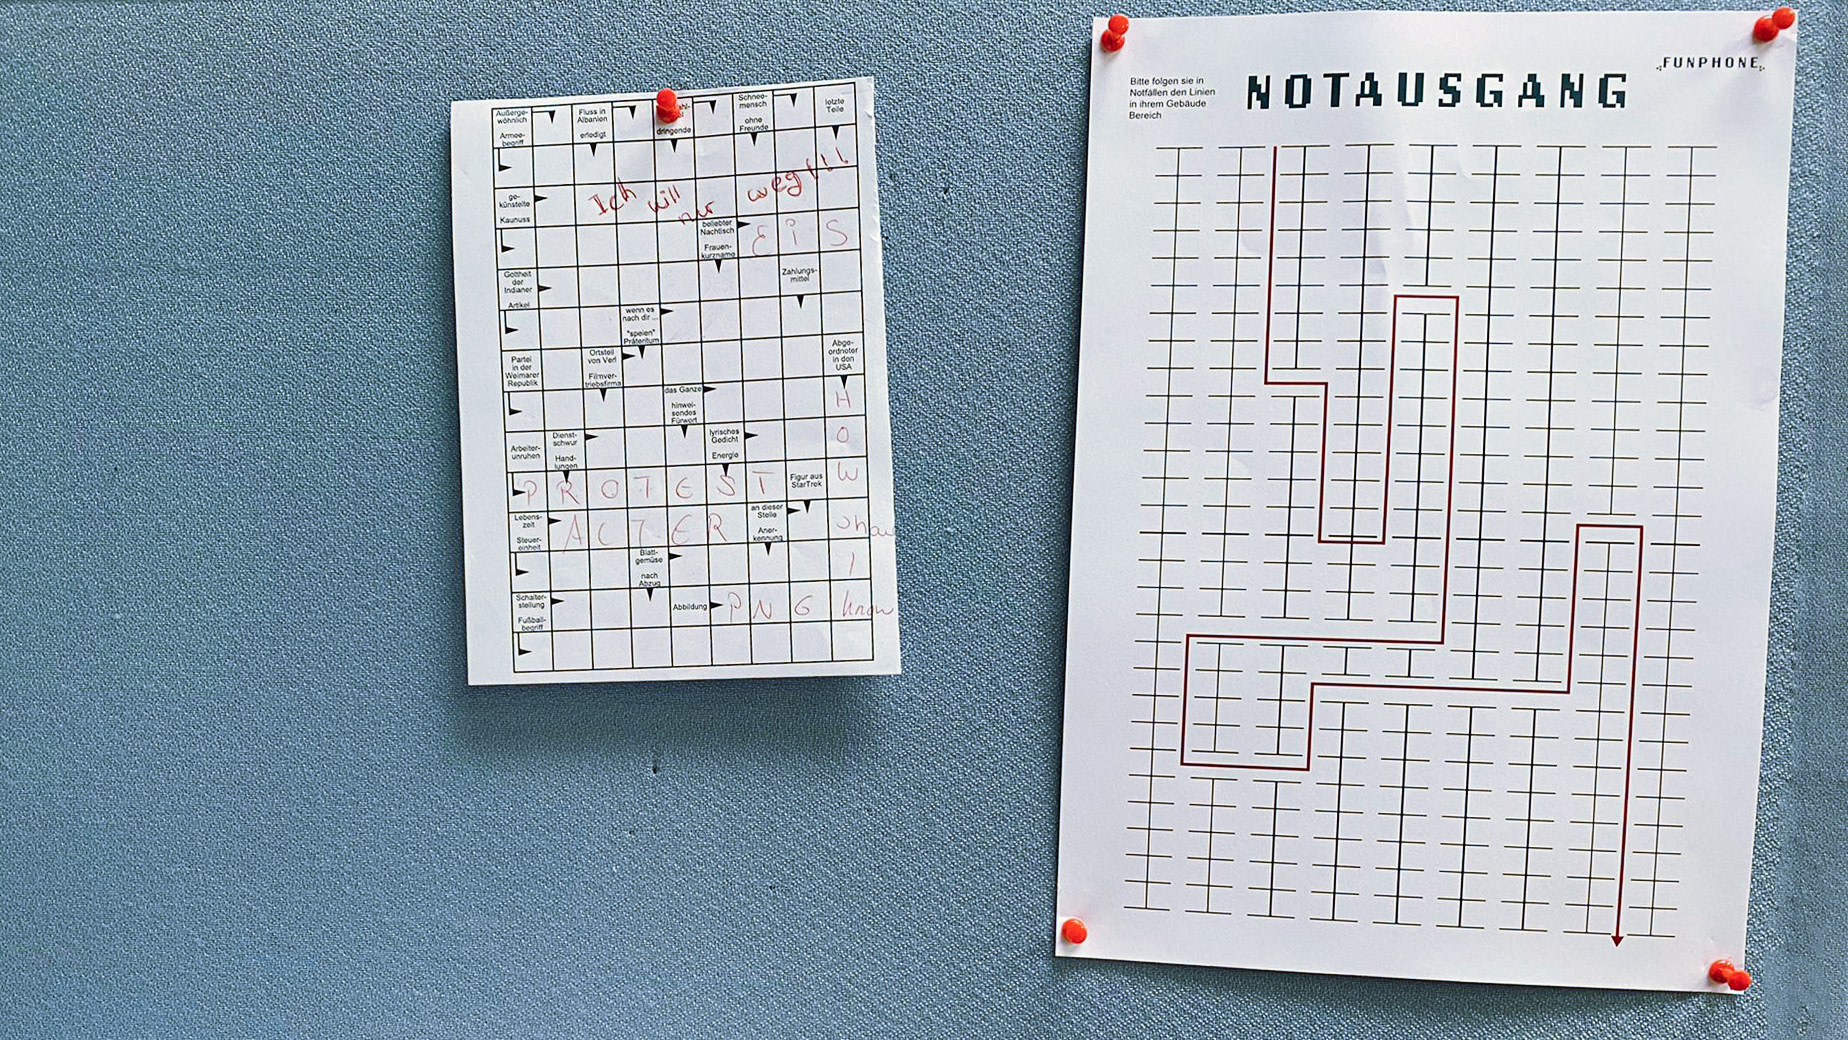 Außerge-
wöhnlich
Armee-
begriff
Fluss in
Albanien
erledigt
dringende
Schnee-
mensch
ohne
Freunde
letzte
Teile
ge-
künstelte
Kaunuss
Ich will nur weg!!!
beliebter
Nachtisch
Frauen-
kurzname
EiS
Gottheit
der
Indianer
Artikel
Zahlungs-
mittel
wenn es
nach dir ...
"speien"
Präteritum
Partei
in der
Weimarer
Republik
Ortsteil
von Verl
Filmver-
triebsfirma
Abge-
ordneter
in den
USA
das Ganze
hinwei-
sendes
Fürwort
H
O
W
Arbeiter-
unruhen
Dienst-
schwur
Hand-
lungen
lyrisches
Gedicht
Energie
PROTEST
Figur aus
StarTrek
Lebens-
zeit
Steuer-
einheit
ACTER
an dieser
Stelle
Aner-
kennung
Blatt-
gemüse
nach
Abzug
I
Schalter-
stellung
Fußball-
begriff
Abbildung
PNG
know
FUNPHONE
Bitte folgen sie in
Notfällen den Linien
in ihrem Gebäude
Bereich
NOTAUSGANG